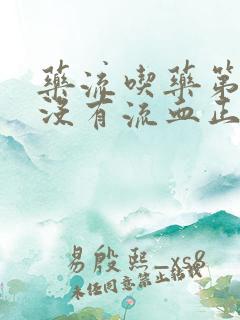 药流喫药第
没有流血止
易殷熙_xs8
未经同意禁止转载